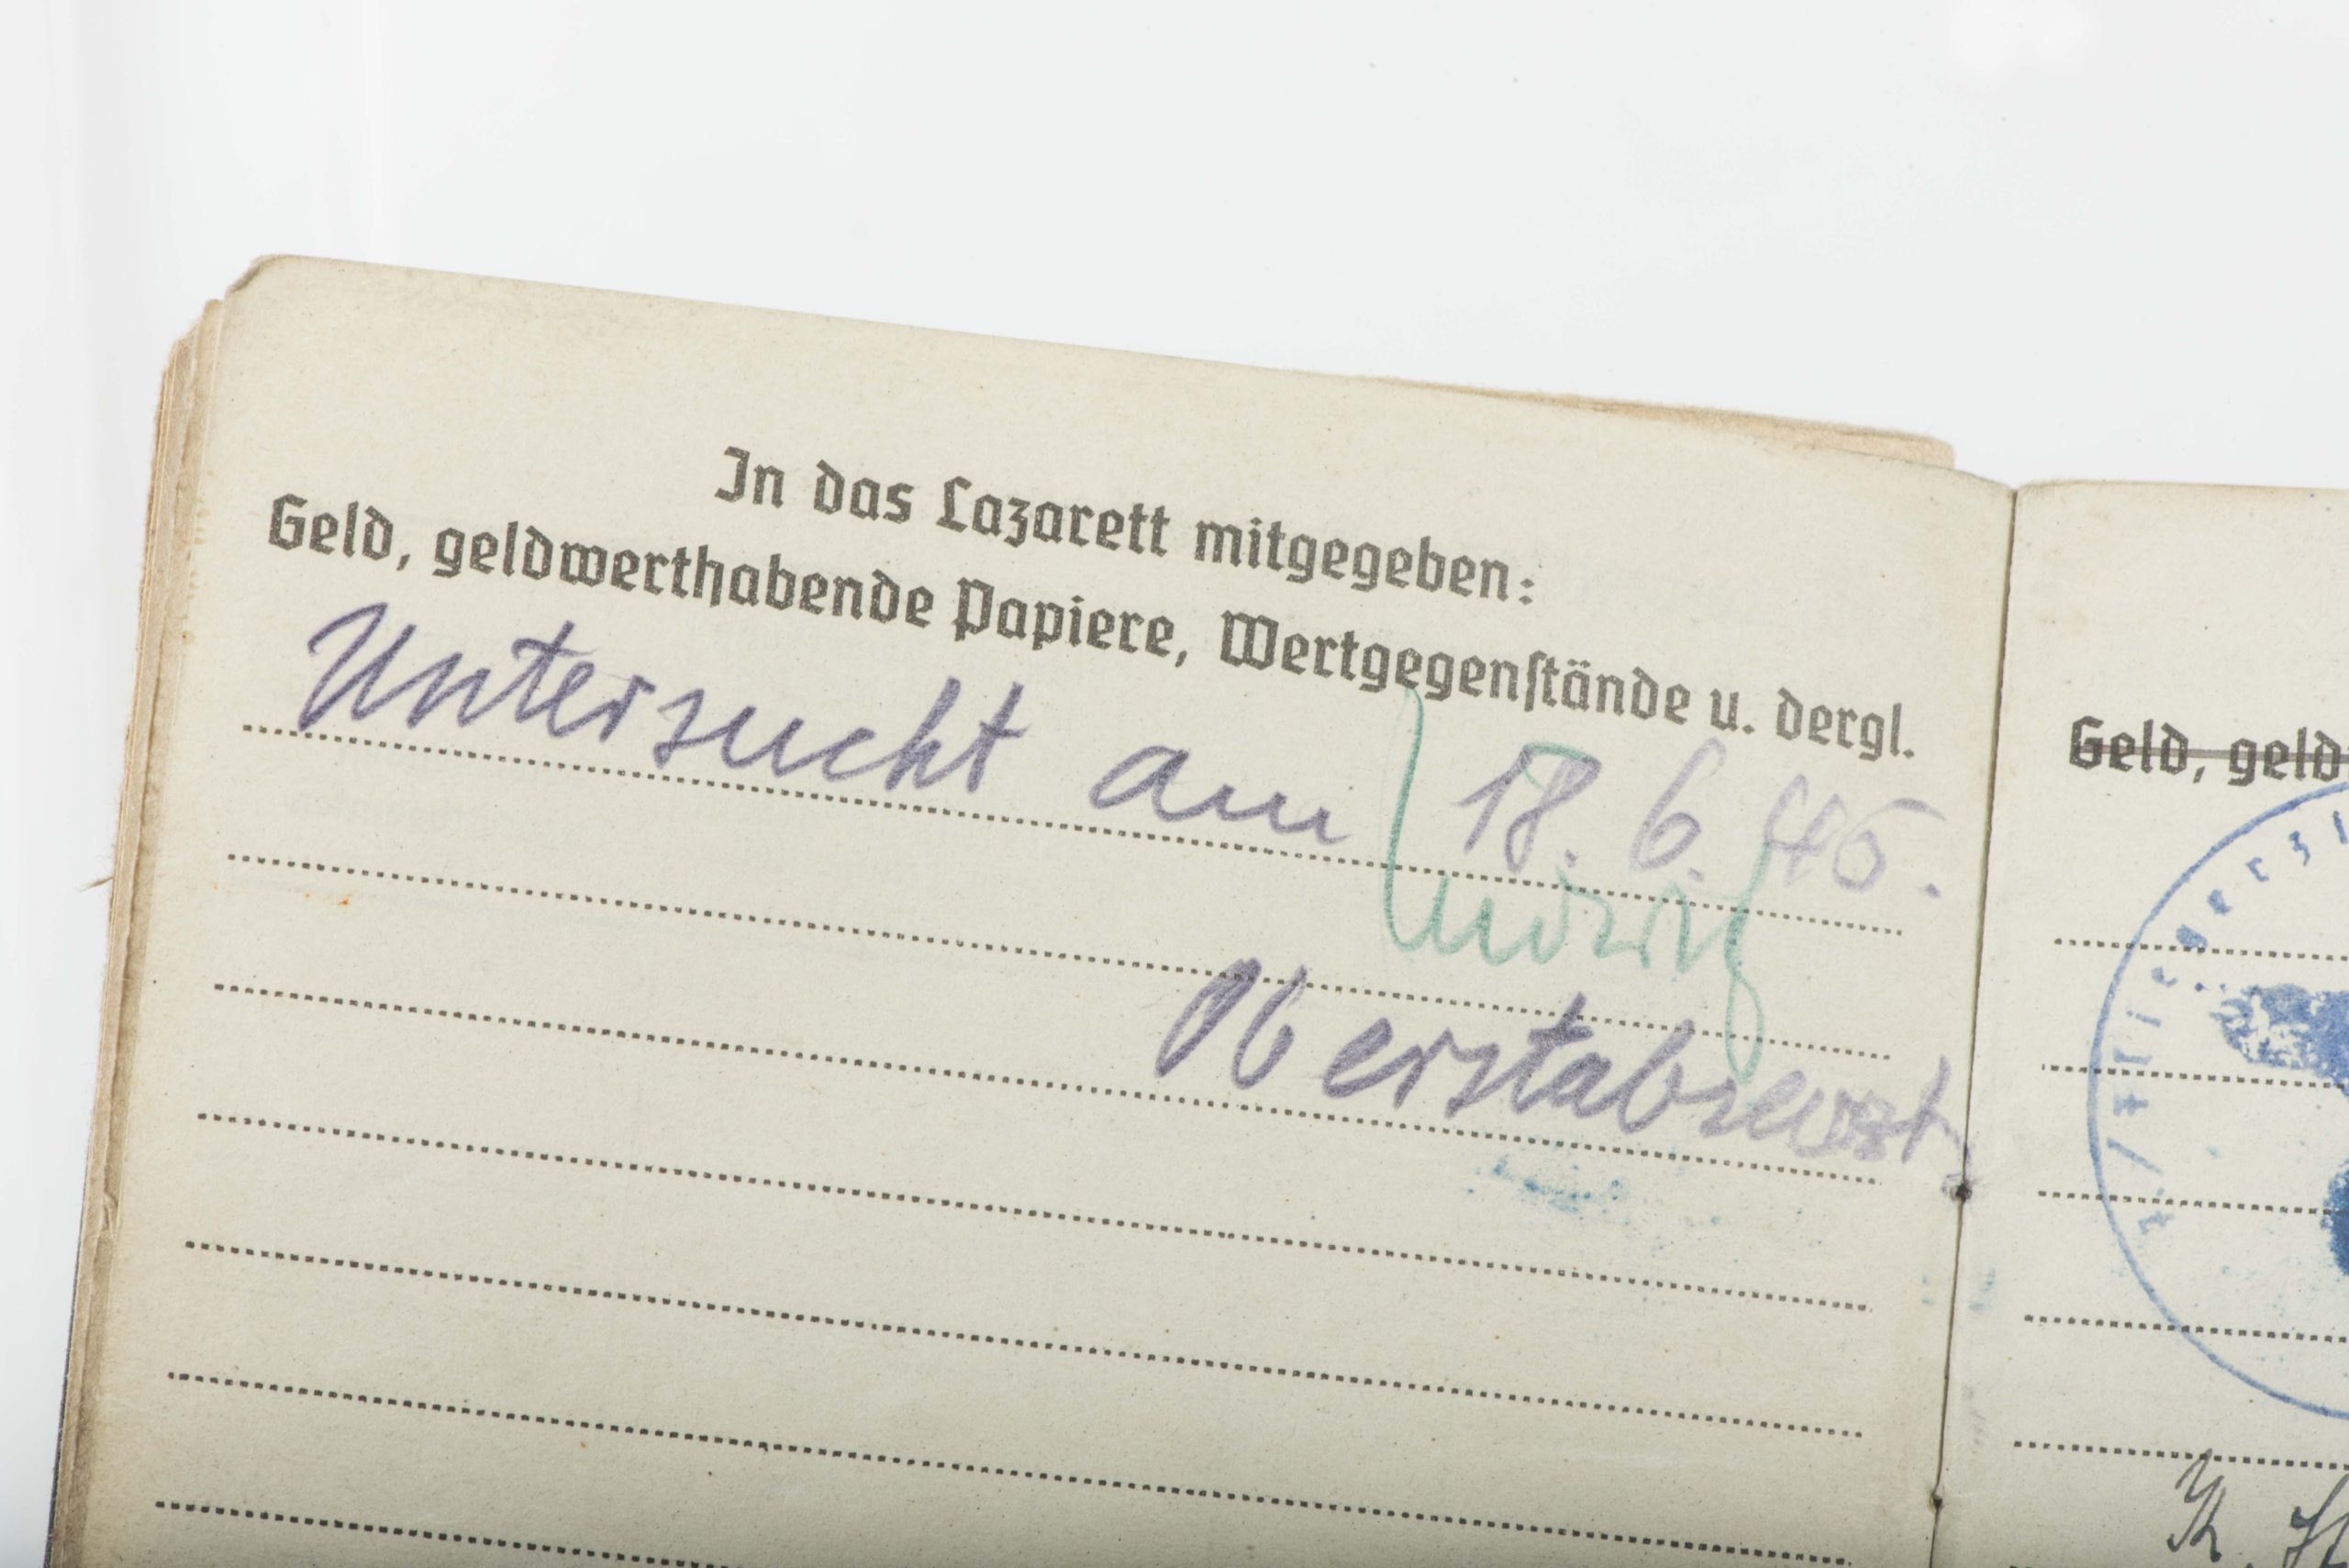 In das Lazarett mitgegeben:
Geld, geldwerthabende Papiere, Wertgegenstände u. dergl.
Untersucht am 18. 6. 45.
Oberstabsarzt
Geld, geld